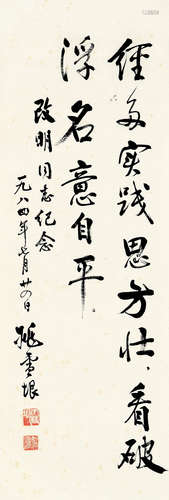 经多实践思方壮，看破
浮名意自平。
改明同志纪念
一九八四年七月廿四日
姚雪垠